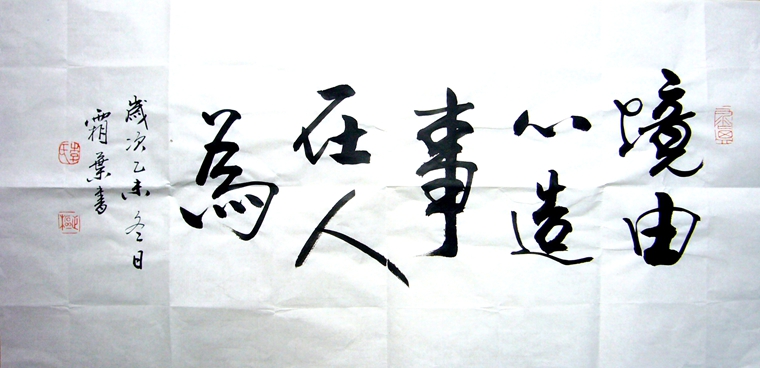 境由
心造
事
在人
為
歲次乙未冬日
霜葉書